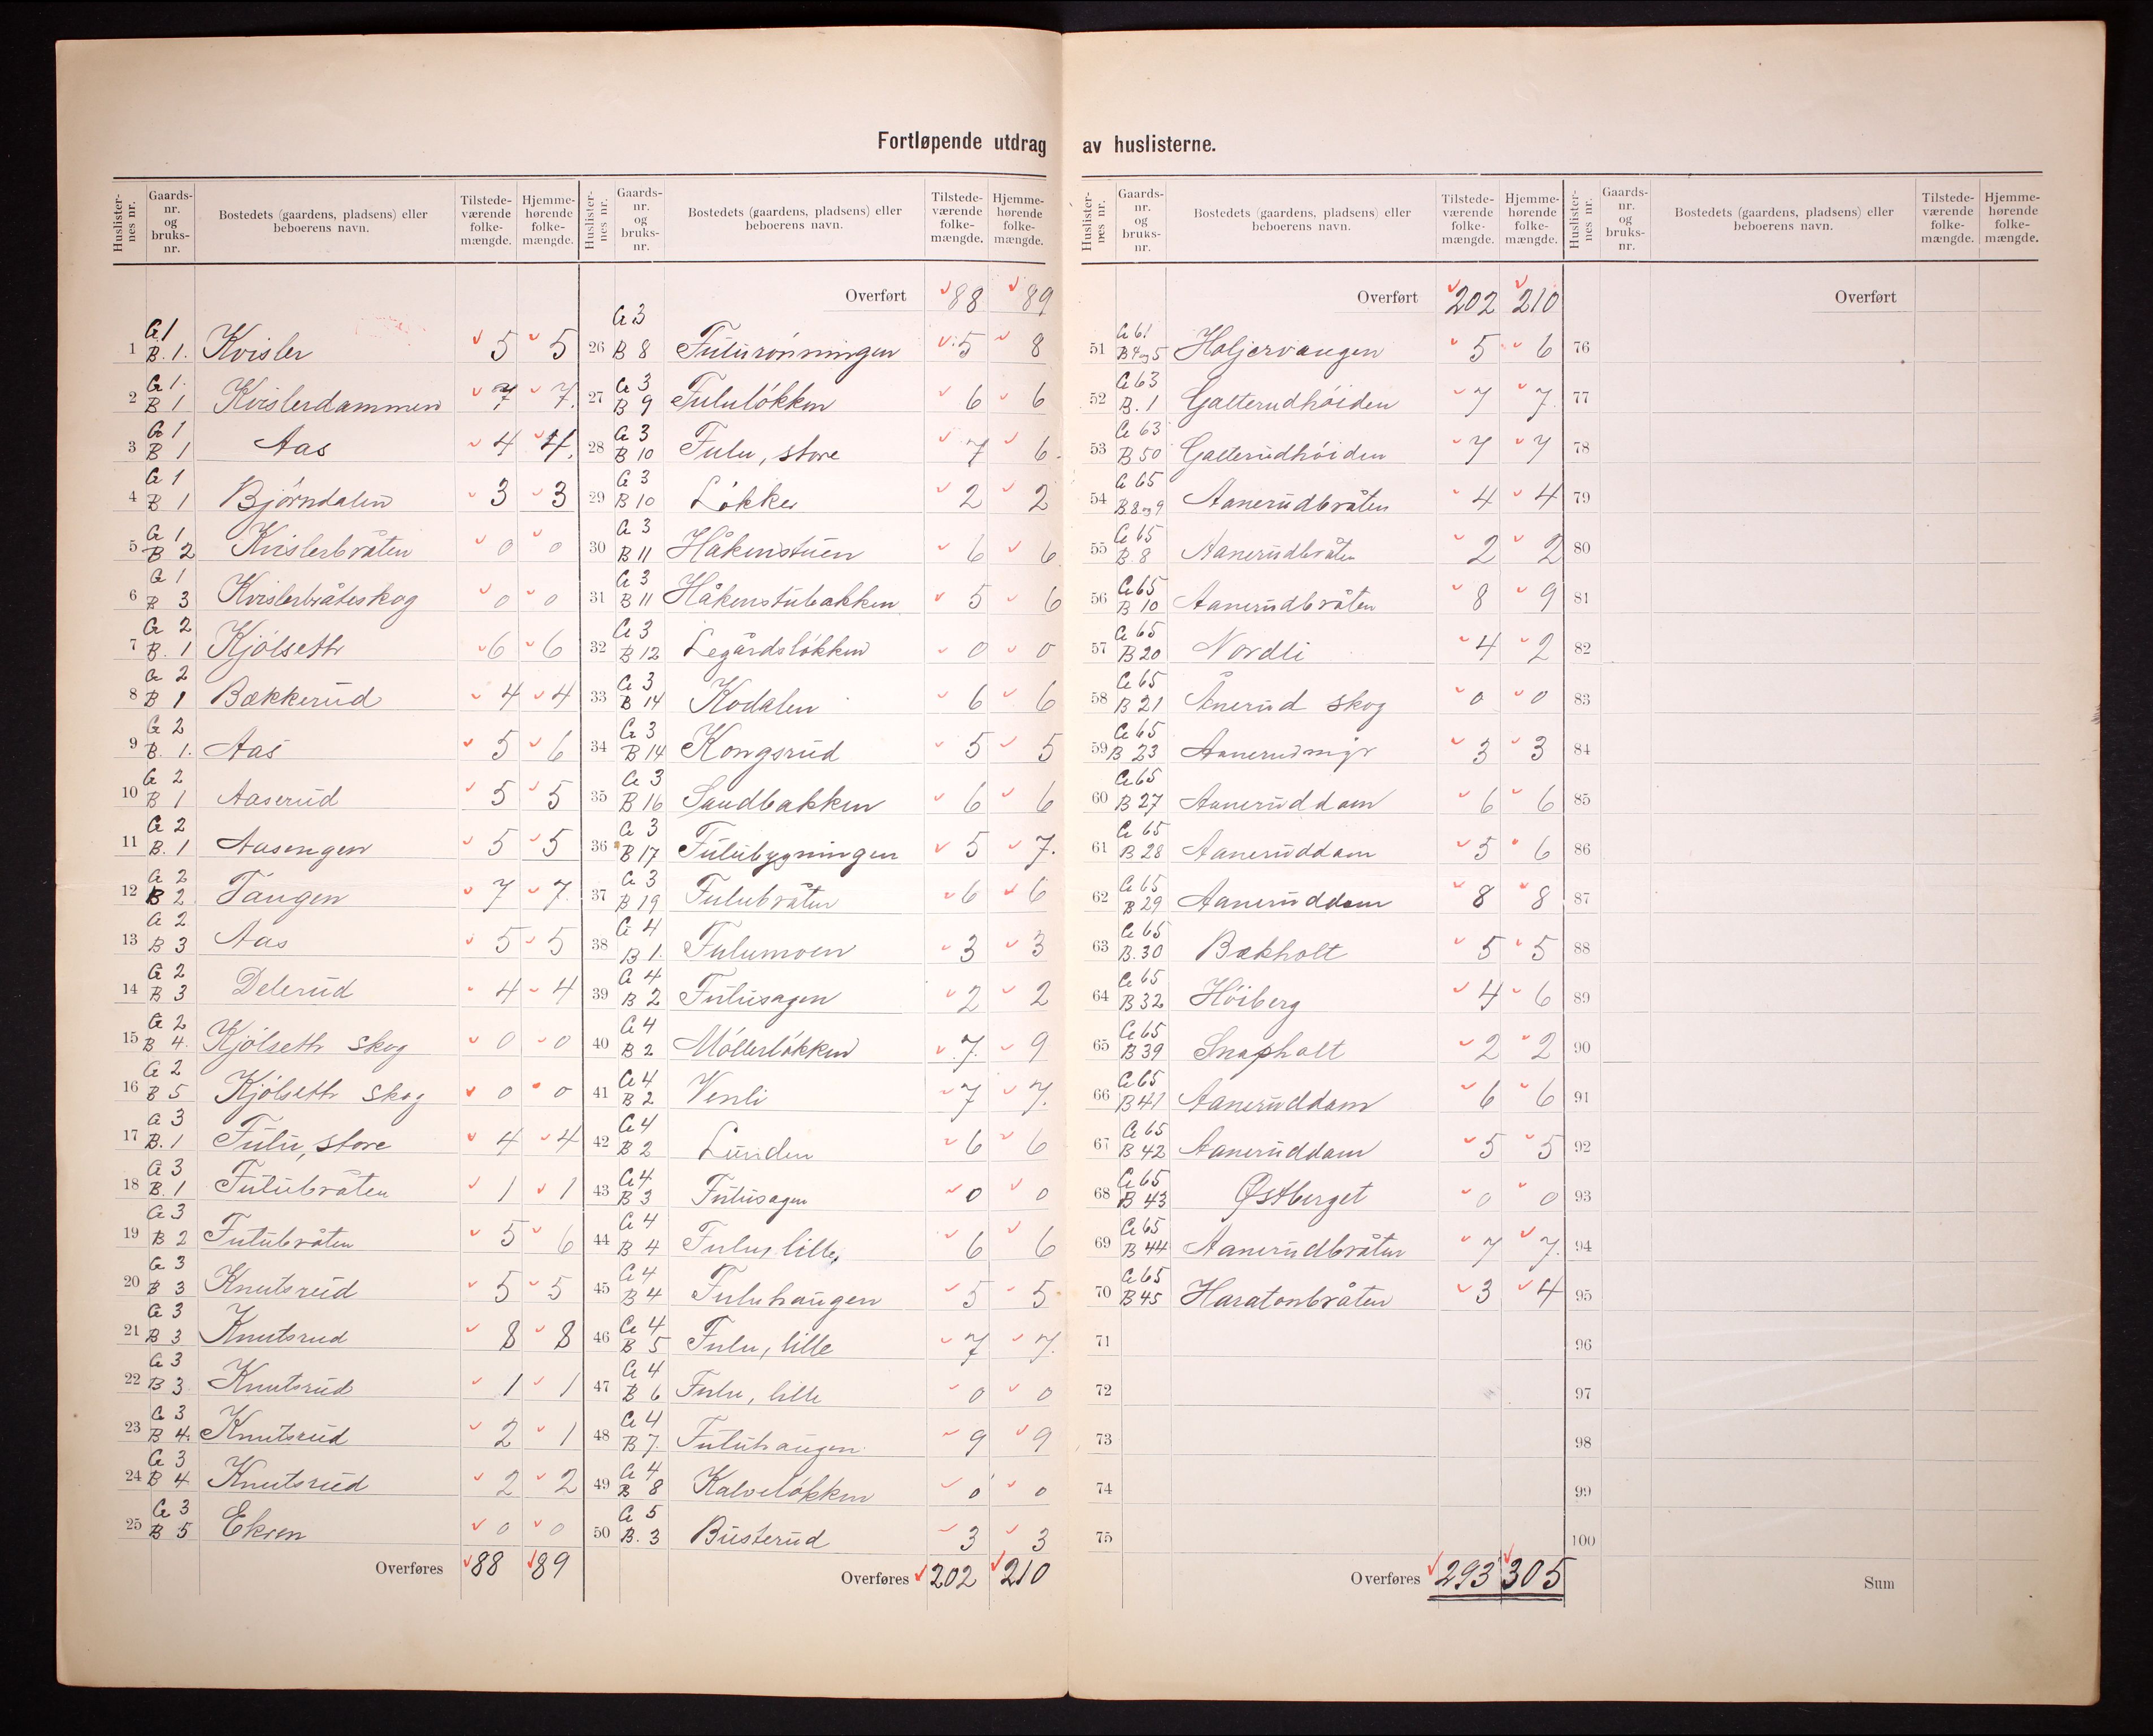 Fortløpende utdrag av huslisterne.
Huslister-nes nr. Gaards-nr. og bruks-nr. Bostedets (gaardens, pladsens) eller beboerens navn. Tilstede-værende folke-mængde. Hjemme-hørende folke-mængde.
1 G 1 B. 1. Kvisler 5 5
2 G 1. B 1 Kvislerdammen 7 7.
3 G 1 B 1 Aas 4 4.
4 G 1 B 1 Bjørndalen 3 3
5 G 1 B 2 Kvislerbråten 0 0
6 G 1 B 3 Kvislerbråteskog 0 0
7 G 2 B. 1 Kjølseth 6 6
8 G 2 B 1 Bækkerud 4 4
9 G 2 B. 1. Aas 5 6
10 G 2 B 1 Aaserud 5 5
11 G 2 B. 1 Aasengen 5 5
12 G 2 B 2 Tangen 7 7.
13 G 2 B 3 Aas 5 5
14 G 2 B 3 Delerud 4 4
15 G 2 B 4. Kjølseth skog 0 0
16 G 2 B 5 Kjølseth skog 0 0
17 G 3 B. 1 Fulu, store 4 4
18 G 3 B. 1 Fulubråten 1 1
19 G 3 B 2 Fulubråten 5 6
20 G 3 B 3 Knutsrud 5 5
21 G 3 B 3 Knutsrud 8 8
22 G 3 B 3 Knutsrud 1 1
23 G 3 B 4. Knutsrud 2 1
24 G 3 B 4 Knutsrud 2 2
25 G 3 B 5 Ekren 0 0
Overføres 88 89
Huslister-nes nr. Gaards-nr. og bruks-nr. Bostedets (gaardens, pladsens) eller beboerens navn. Tilstede-værende folke-mængde. Hjemme-hørende folke-mængde.
Overført 88 89
26 G 3 B 8 Fulurønningen 5 8
27 G 3 B 9 Fululøkken 6 6
28 G 3 B 10 Fulu, store 7 6.
29 G 3 B 10 Løkken 2 2
30 G 3 B 11 Håkenstuen 6 6
31 G 3 B 11 Håkenstubakken 5 6
32 G 3 B 12 Legårdsløkken 0 0
33 G 3 B 14 Kodalen 6 6
34 G 3 B 14 Kongsrud 5 5
35 G 3 B 16 Sandbakken 6 6
36 G 3 B 17 Fulubygningen 5 7.
37 G 3 B 19 Fulubråten 6 6
38 G 4 B 1. Fulumoen 3 3
39 G 4 B 2 Fulusagen 2 2
40 G 4 B 2 Møllerløkken 7. 9
41 G 4 B 2 Venli 7 7.
42 G 4 B 2 Lunden 6 6
43 G 4 B 3 Fulusagen 0 0
44 G 4 B 4 Fulu, lille, 6 6
45 G 4 B 4 Fuluhaugen 5 5
46 G 4 B 5 Fulu, lille 7 7.
47 G 4 B 6 Fulu, lille 0 0
48 G 4 B 7. Fuluhaugen 9 9
49 G 4 B 8 Kalveløkken 0 0
50 G 5 B. 3 Busterud 3 3
Overføres 202 210
Huslister-nes nr. Gaards-nr. og bruks-nr. Bostedets (gaardens, pladsens) eller beboerens navn. Tilstede-værende folke-mængde. Hjemme-hørende folke-mængde.
Overført 202 210
51 G 61 B 4 og 5 Holjervangen 5 6
52 G 63 B. 1 Galterudhøiden 7 7.
53 G 63 B 50 Galterudhøiden 7 7
54 G 65 B 8 og 9 Aanerudbråten 4 4
55 G 65 B. 8 Aanerudbråten 2 2
56 G 65 B 10 Aanerudbråten 8 9
57 G 65 B 20 Nordli 4 2
58 G 65 B 21 Ånerud skog 0 0
59 G 65 B 23 Aanerudmyr 3 3
60 G 65 B 27 Aaneruddam 6 6
61 G 65 B 28 Aaneruddam 5 6
62 G 65 B 29 Aaneruddam 8 8
63 G 65 B. 30 Bækholt 5 5
64 G 65 B 32 Høiberg 4 6
65 G 65 B 39 Snapholt 2 2
66 G 65 B 41 Aaneruddam 6 6
67 G 65 B 42 Aaneruddam 5 5
68 G 65 B 43 Østberget 0 0
69 G 65 B 44 Aanerudbråten 7 7.
70 G 65 B 45 Haratonbråten 3 4
71
72
73
74
75
Overføres 293 305
Huslister-nes nr. Gaards-nr. og bruks-nr. Bostedets (gaardens, pladsens) eller beboerens navn. Tilstede-værende folke-mængde. Hjemme-hørende folke-mængde.
Overført
76
77
78
79
80
81
82
83
84
85
86
87
88
89
90
91
92
93
94
95
96
97
98
99
100
Sum